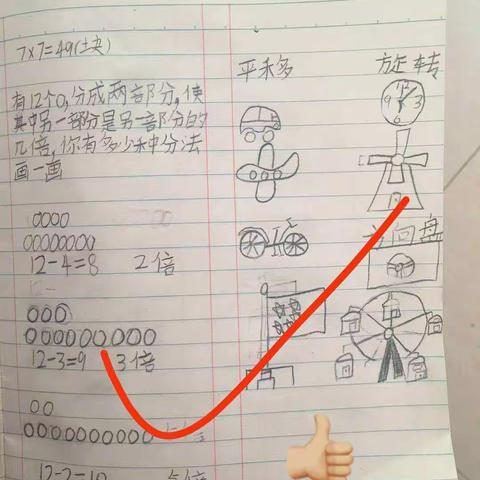 7×7=49(块)
有12个O,分成两部分,使
其中另一部分是另一部分的
几倍,你有多少种分法
画一画
OOOO
OOOOOOOO
12-4=8 2倍
OOO
OOOOOOOOO
12-3=9 3倍
OO
OOOOOOOOOO
12-2=10
平移
旋转
9 3
方向盘